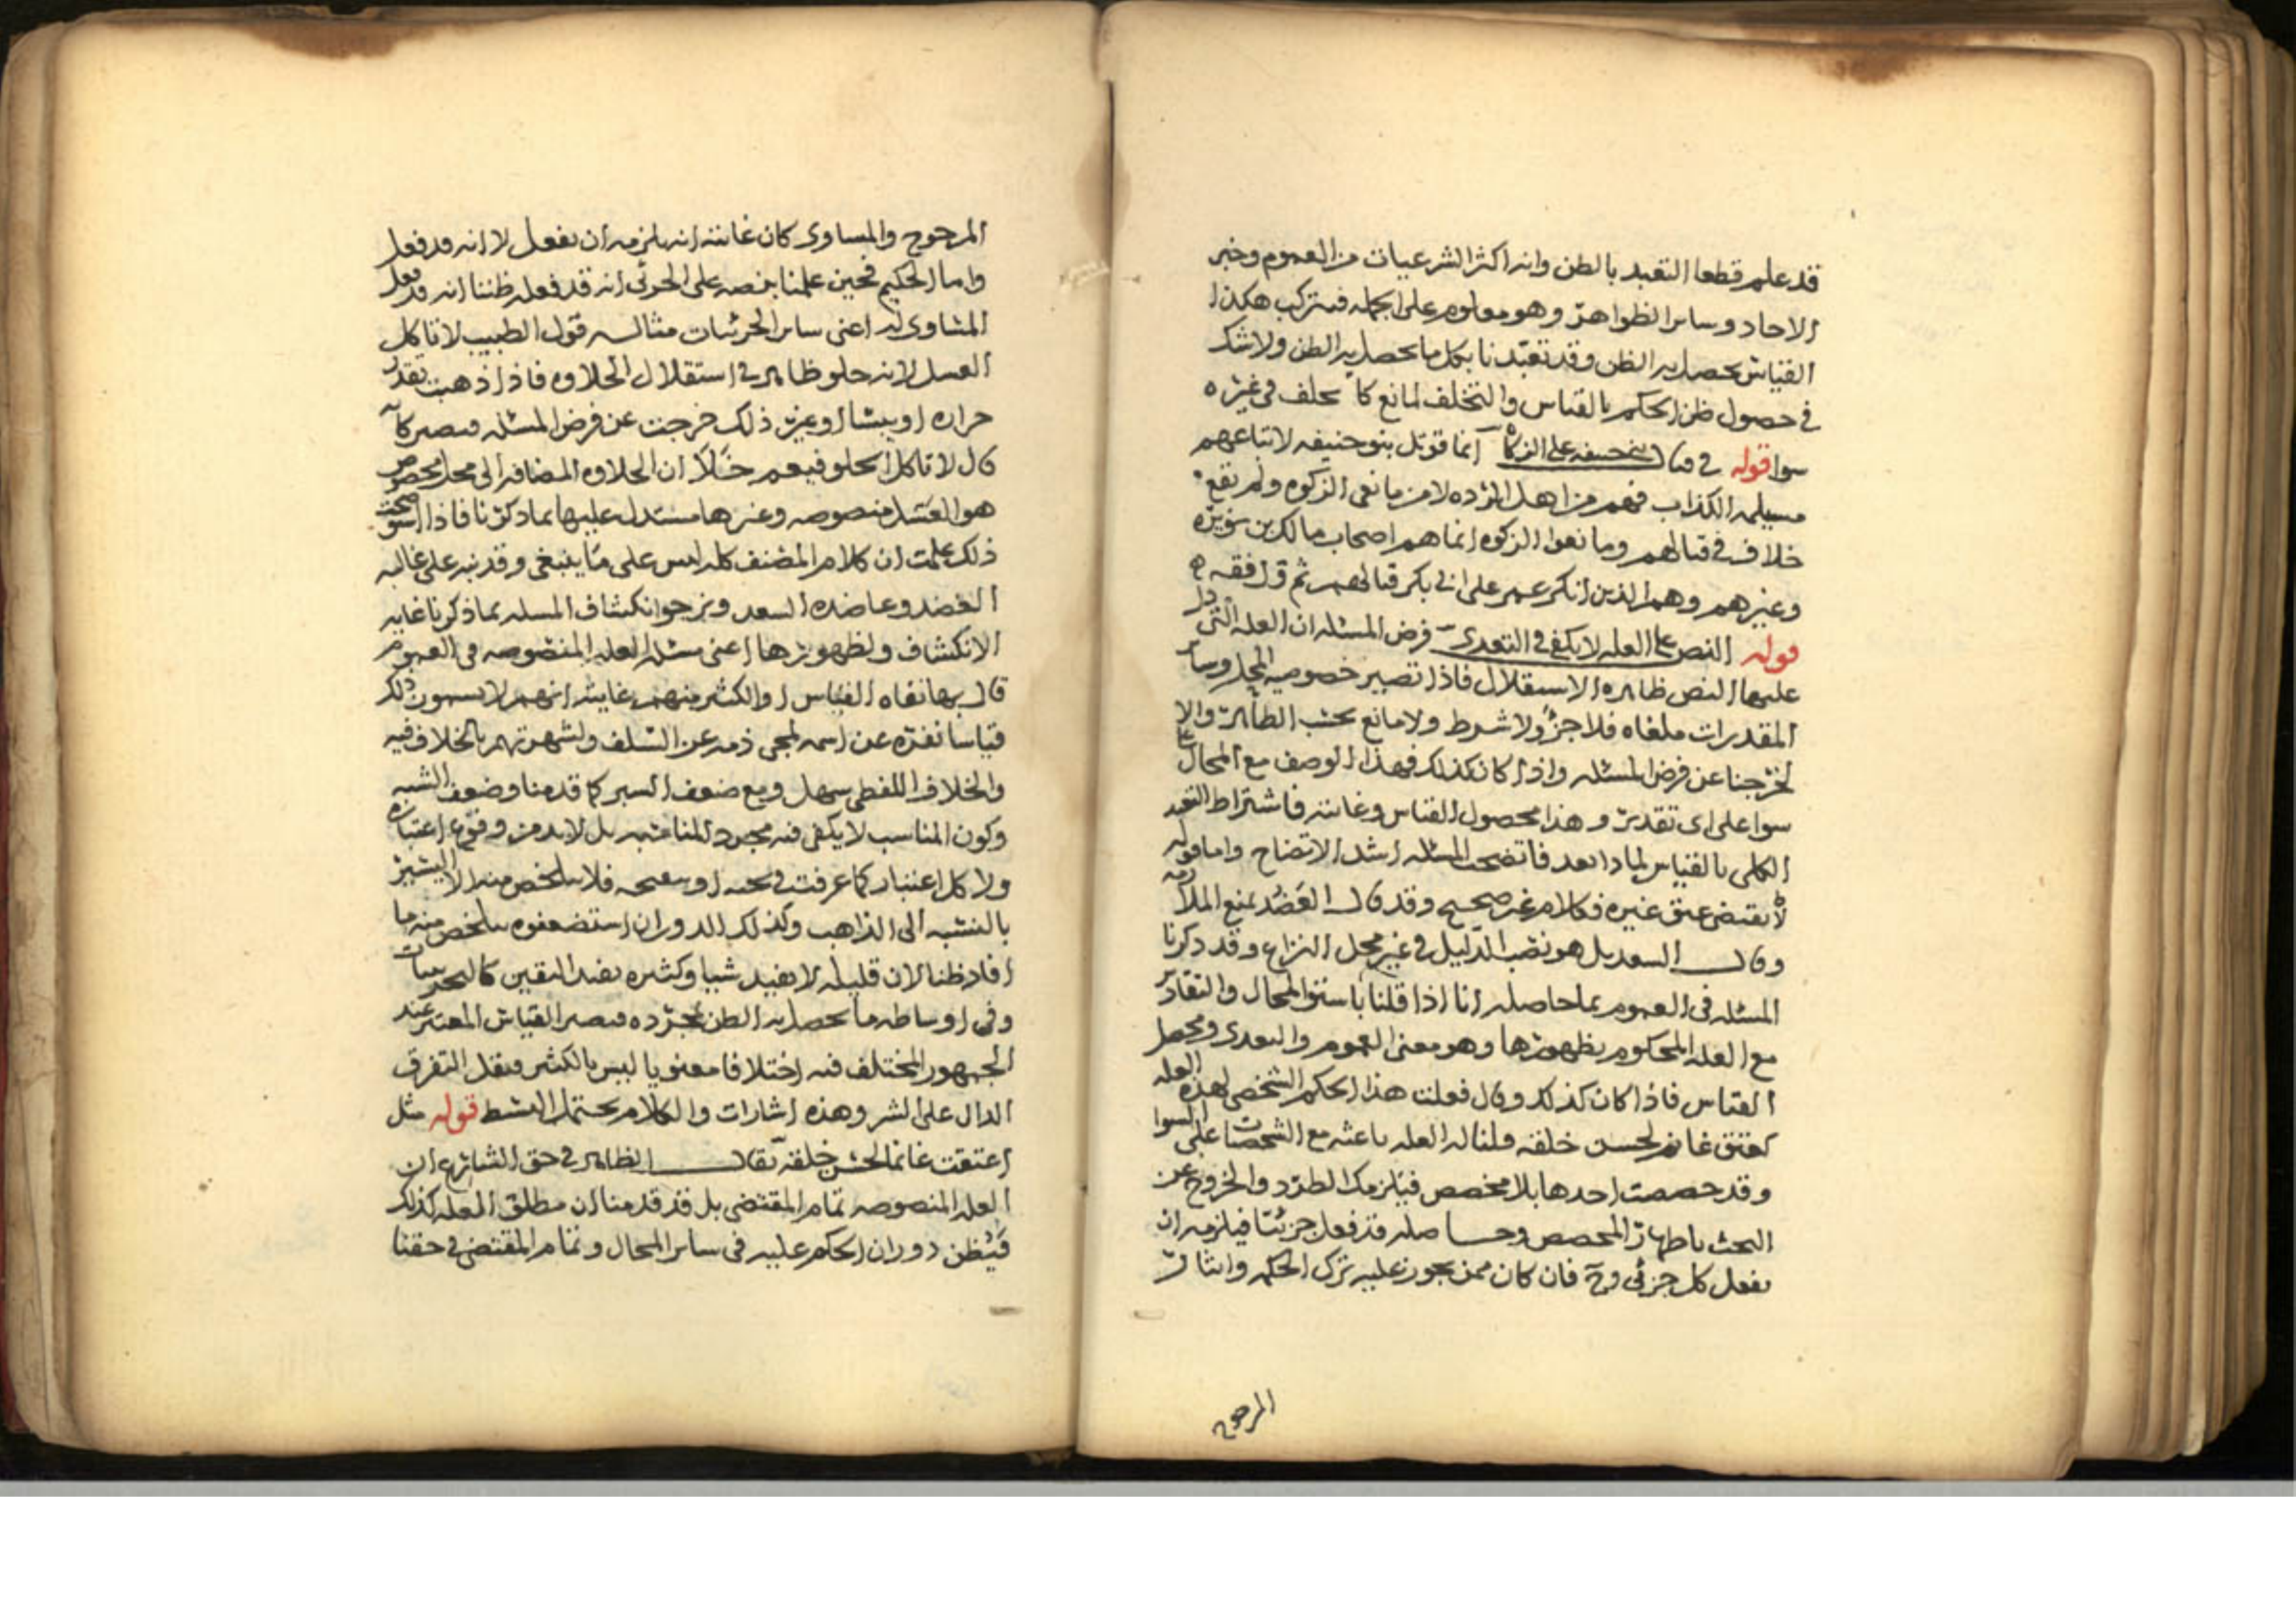 قد علم قطعا التعبد بالظن وانه اكثر الشرعيات من العموم وخبر
الاحاد وساير الظواهر وهو معلوم على الجمله فيتركب هكذا
القياس يحصل به الظن وقد تعبدنا بكل ما يحصل به الظن ولا شك
في حصول ظن الحكم بالقياس والتخلف لمانع كما تخلف في غيره
سوا قوله في قتال بني حنيفه على الزكاة انما قوتل بنو حنيفه لاتباعهم
مسيلمه الكذاب فهم من اهل الرده لا من مانعي الزكوه ولم يقع
خلاف في قتالهم ومانعوا الزكوه انما هم اصحاب مالك بن نويره
وغيرهم وهم الذين انكر عمر على ابي بكر قتالهم ثم وافقه
قوله النص على العله لا يكفي في التعدي فرض المسئله ان العله التي دل
عليها النص ظاهره الاستقلال فاذا تصير خصوصيه المحل وساير
المقدرات ملغاه فلا جزؤ ولا شرط ولا مانع بحسب الظاهر والا
لخرجنا عن فرض المسئله واذا كان كذلك فهذا الوصف مع المحال
سوا على اي تقدير وهذا محصول القياس وغايته فاشتراط التعبد
الكلي بالقياس لماذا بعد فاتضحت المسئله اشد الاتضاح واما قوله
لا يقتضي عتق غيره فكلام غير صحيح وقد قال العضد بمنع الملازمه
وقال السعد بل هو نصب الدليل في غير محل النزاع وقد ذكرنا
المسئله في العموم بما حاصله انا اذا قلنا باستوا المحال والتقادير
مع العله المحكوم بظهورها وهو معنى العموم والتعدي ومحصل
القياس فاذا كان كذلك وقال فعلت هذا الحكم الشخصي لهذه العله
كعتق غانم لحسن خلقه قلنا له العله باعثه مع الشخصات على السوا
وقد خصصت احدها بلا مخصص فيلزمك الطرد والخروج عن
البحث باظهار المخصص وحاصله قد فعل جزئيا فيلزمه ان
يفعل كل جزئي وح فان كان ممن يجوز عليه ترك الحكمه وايثار
المرجوح
المرجوح والمساوي كان غايته انه يلزمه ان يفعل لا انه قد فعل
واما الحكيم فحين علمنا بنصه على الجزئي انه قد فعله ظننا انه قد فعل
المساوي له اعني ساير الجزئيات مثاله قول الطبيب لا تاكل
العسل لانه حلو ظاهر في استقلال الحلاوه فاذا ذهبت تقدر
حراره او يبسا او غير ذلك خرجت عن فرض المسئله فيصير كانه
قال لا تاكل الحلو فيعم خلا ان الحلاوه المضافه الى محل مخصوص
هو العسل منصوصه وغيرها مستدل عليها بما ذكرنا فاذا استوضحت
ذلك علمت ان كلام المصنف كله ليس على ما ينبغي وقد نبه على غالبه
العضد وعاضده السعد ونرجوا انكشاف المسئله بما ذكرنا غايه
الانكشاف ولظهورها اعني مسئله العله المنصوصه في العموم
قال بها نفاه القياس او الكثير منهم غايته انهم لا يسمون ذلك
قياسا نفره عن اسمه لمجي ذمه عن السلف ولشهرتهم بالخلاف فيه
والخلاف اللفظي سهل ومع ضعف السبر كما قدمنا وضعف الشبه
وكون المناسب لا يكفي فيه مجرد المناسبه بل لا بد من وقوع اعتباره
ولا كل اعتبار كما عرفت في بحثه فلا يتلخص منه الا اليسير
بالنسبه الى الذاهب وكذلك الدوران استضعفوه يتلخص منه ما
افاد ظنا لان قليله لا يفيد شيا وكثيره يفيد اليقين كالتجربيات
وفي اوساطه ما يحصل به الظن بمجرده فيصير القياس المعتبر عند
الجمهور المختلف فيه اختلافا معنويا ليس بالكثير فيقل التفرق
الدال على الشر وهذه اشارات والكلام يحتمل البسط قوله مثل
اعتقت غانما لحسن خلقه يقال الظاهر في حق الشارع ان
العله المنصوصه تمام المقتضي بل قد قدمنا ان مطلق العله كذلك
فيظن دوران الحكم عليه في ساير المحال وتمام المقتضي في حقنا